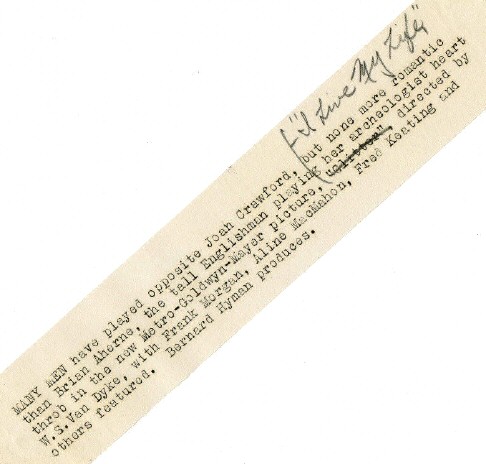 "I Live My Life"
MANY MEN have played opposite Joan Crawford, but none more romantic
than Brian Aherne, the tall Englishman playing her archeologist heart
throb in the new Metro-Goldwyn-Mayer picture, "Glitter", directed by
W.S.Van Dyke, with Frank Morgan, Aline MacMahon, Fred Keating and
others featured. Bernard Hyman produces.